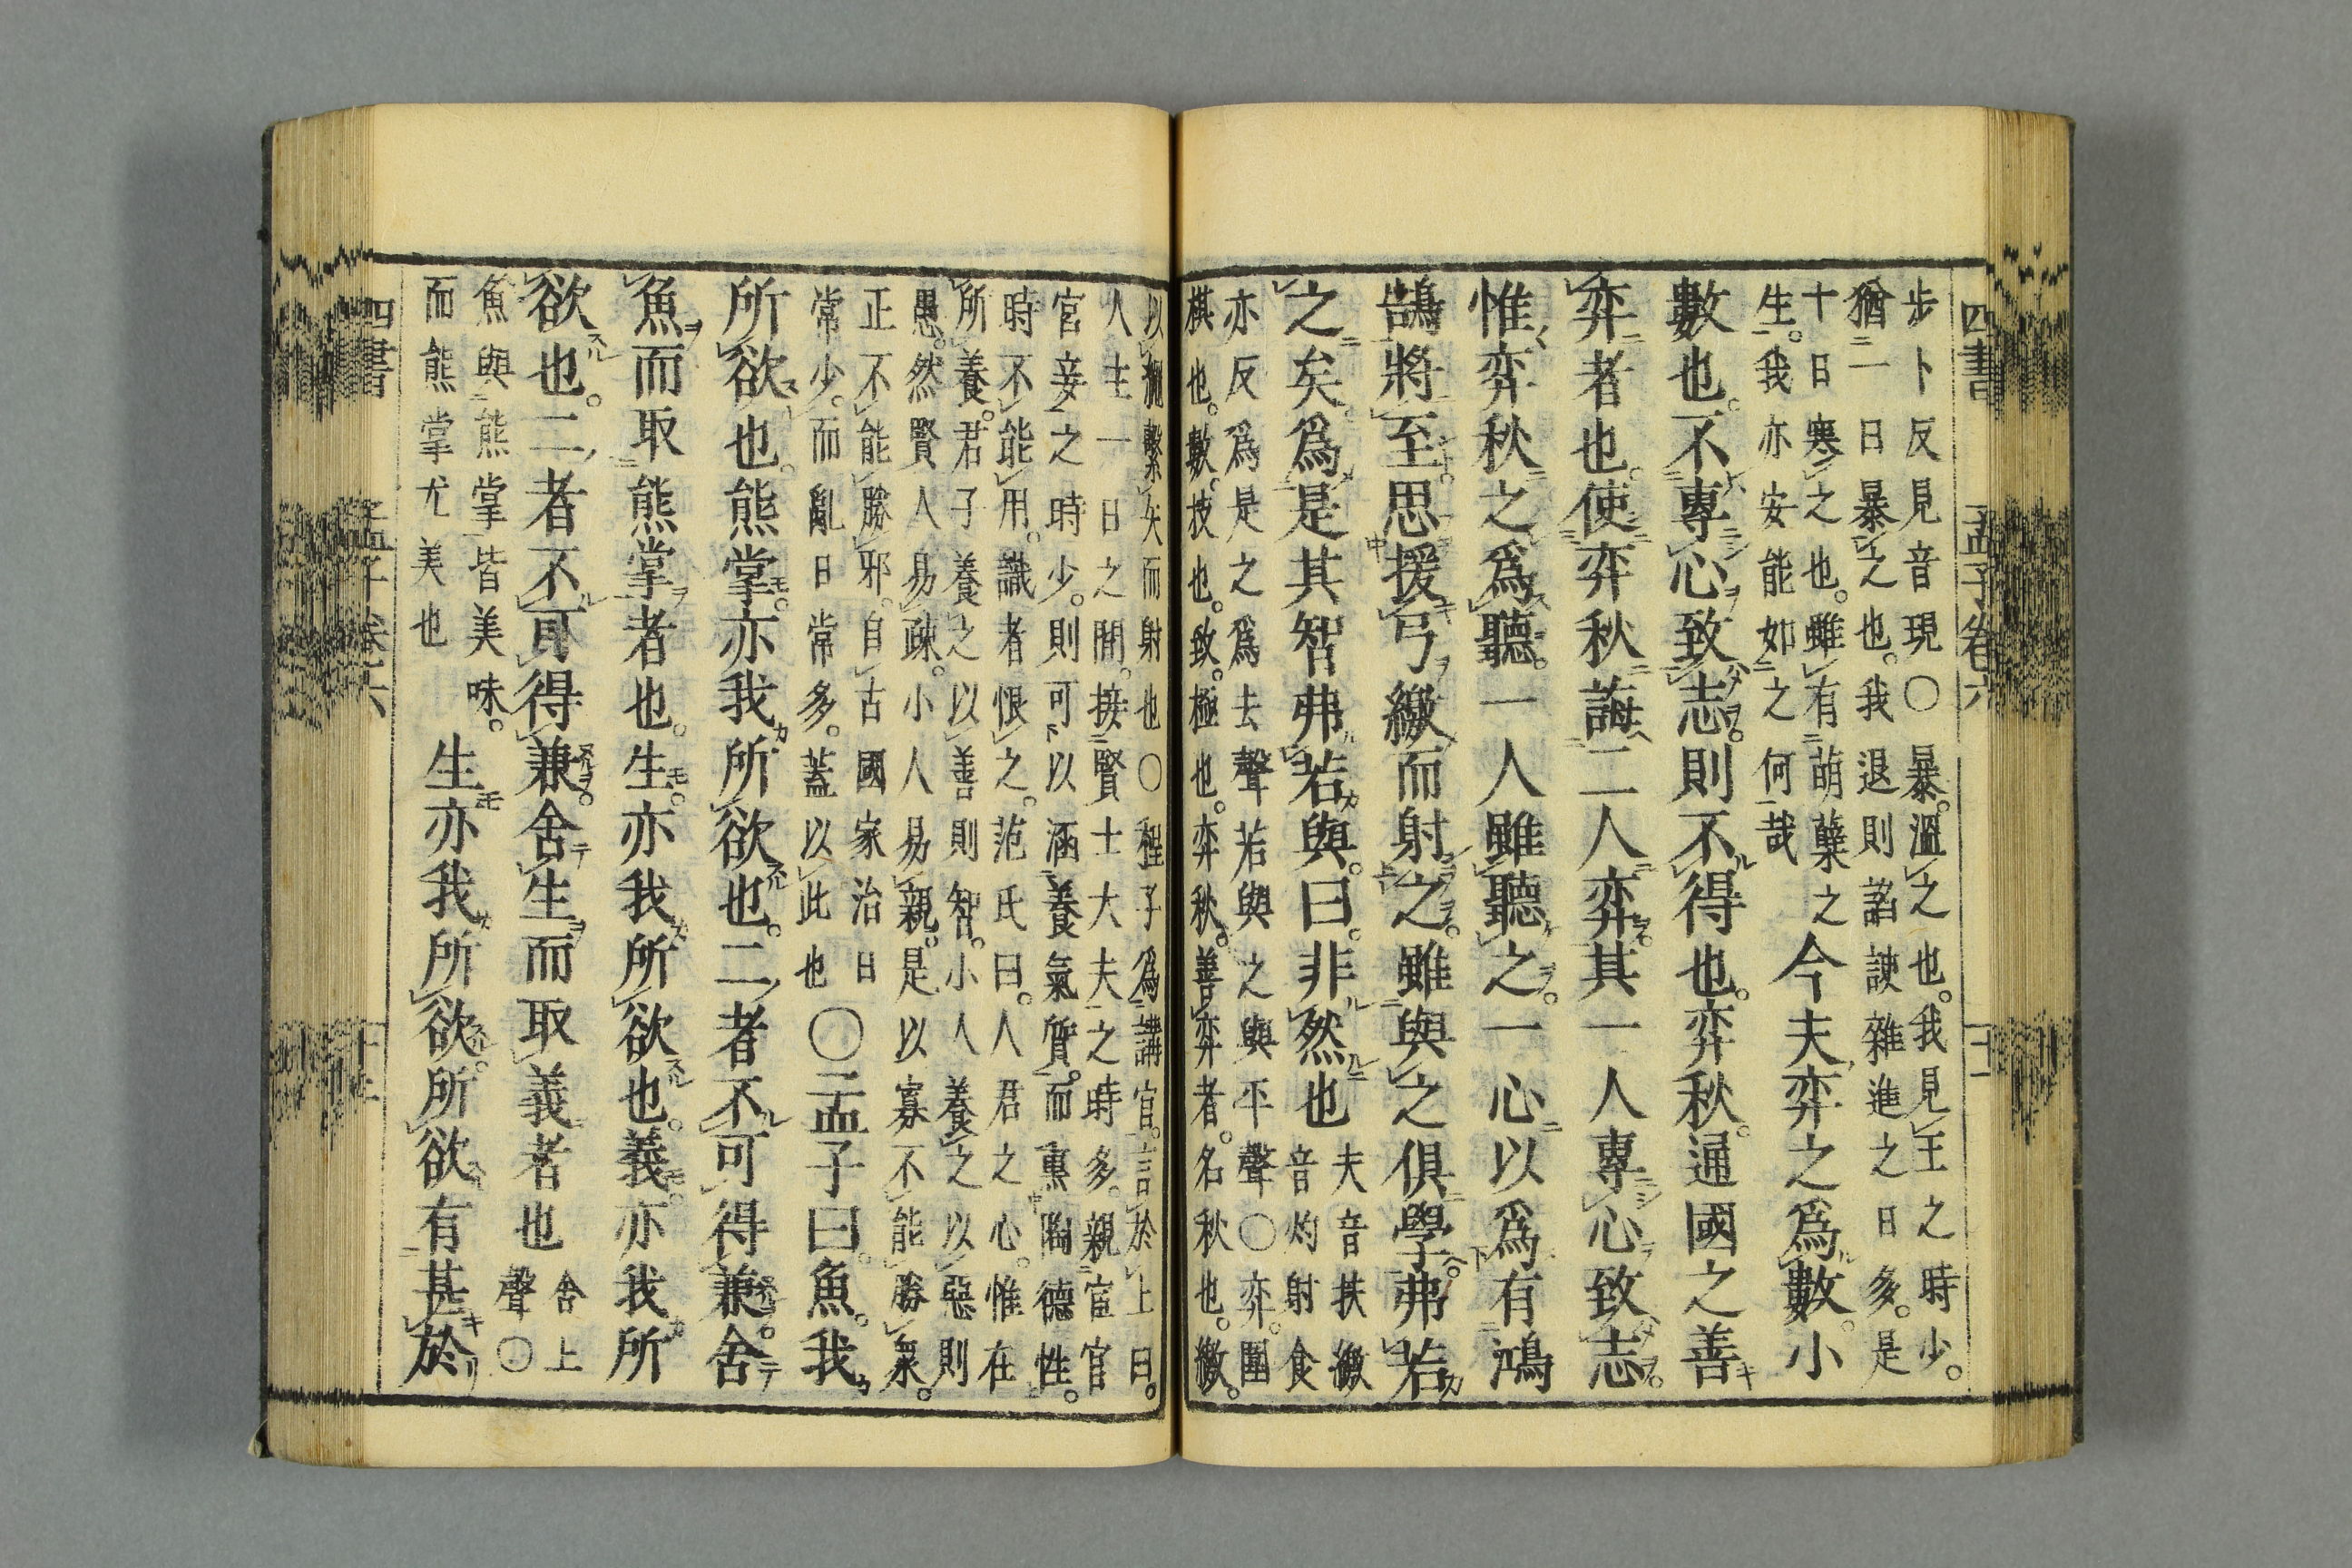 四書 孟子卷六
步卜反見音現○暴溫之也我見王之時少
猶一日暴之也我退則諂諛雜進之日多是
十日寒之也雖有萌蘗之
生我亦安能如之何哉
今夫弈之爲數小
數也不專心致志則不得也弈秋通國之善
弈者也使弈秋誨二人弈其一人專心致志
惟弈秋之爲聽一人雖聽之一心以爲有鴻
鵠將至思援弓繳而射之雖與之俱學弗若
之矣爲是其智弗若與曰非然也
夫音扶繳
音灼射食
亦反爲是之爲去聲若與之與平聲○弈圍
棋也數技也致極也弈秋善弈者名秋也繳
以繩繫矢而射也○程子爲講官言於上曰
人主一日之閒接賢士大夫之時多親宦官
宮妾之時少則可以涵養氣質而薰陶德性
時不能用識者恨之范氏曰人君之心惟在
所養君子養之以善則智小人養之以惡則
愚然賢人易疎小人易親是以寡不能勝衆
正不能勝邪自古國家治日
常少而亂日常多蓋以此也
○孟子曰魚我
所欲也熊掌亦我所欲也二者不可得兼舍
魚而取熊掌者也生亦我所欲也義亦我所
欲也二者不可得兼舍生而取義者也
舍上
聲○
魚與熊掌皆美味
而熊掌尤美也
生亦我所欲所欲有甚於
四書 孟子卷六